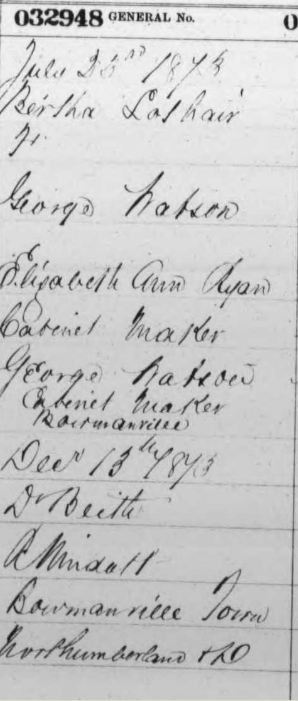 032948 GENERAL No. 0
July 23rd 1873
Bertha Lothair
Fr
George Watson
Elizabeth Ann Ryan
Cabinet Maker
George Watson
Cabinet Maker
Bowmanville
Decr 13th 1873
Dr Beith
R Windatt
Bowmanville Town
Northumberland & D